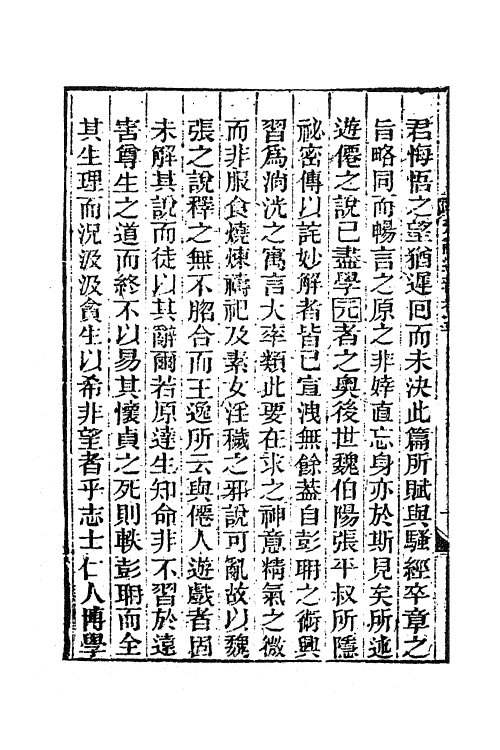 君悔悟之望猶遲囘而未決此篇所賦與騷經卒章之
旨略同而暢言之原之非婞直忘身亦於斯見矣所述
遊僊之說已盡學元者之奧後世魏伯陽張平叔所隱
祕密傳以詫妙解者皆已宣洩無餘葢自彭耼之術興
習爲淌洸之寓言大率類此要在求之神意精氣之微
而非服食燒煉禱祀及素女淫穢之邪說可亂故以魏
張之說釋之無不脗合而王逸所云與僊人遊戲者固
未解其說而徒以其辭爾若原達生知命非不習於遠
害尊生之道而終不以易其懷貞之死則軼彭耼而全
其生理而況汲汲貪生以希非望者乎志士仁人博學